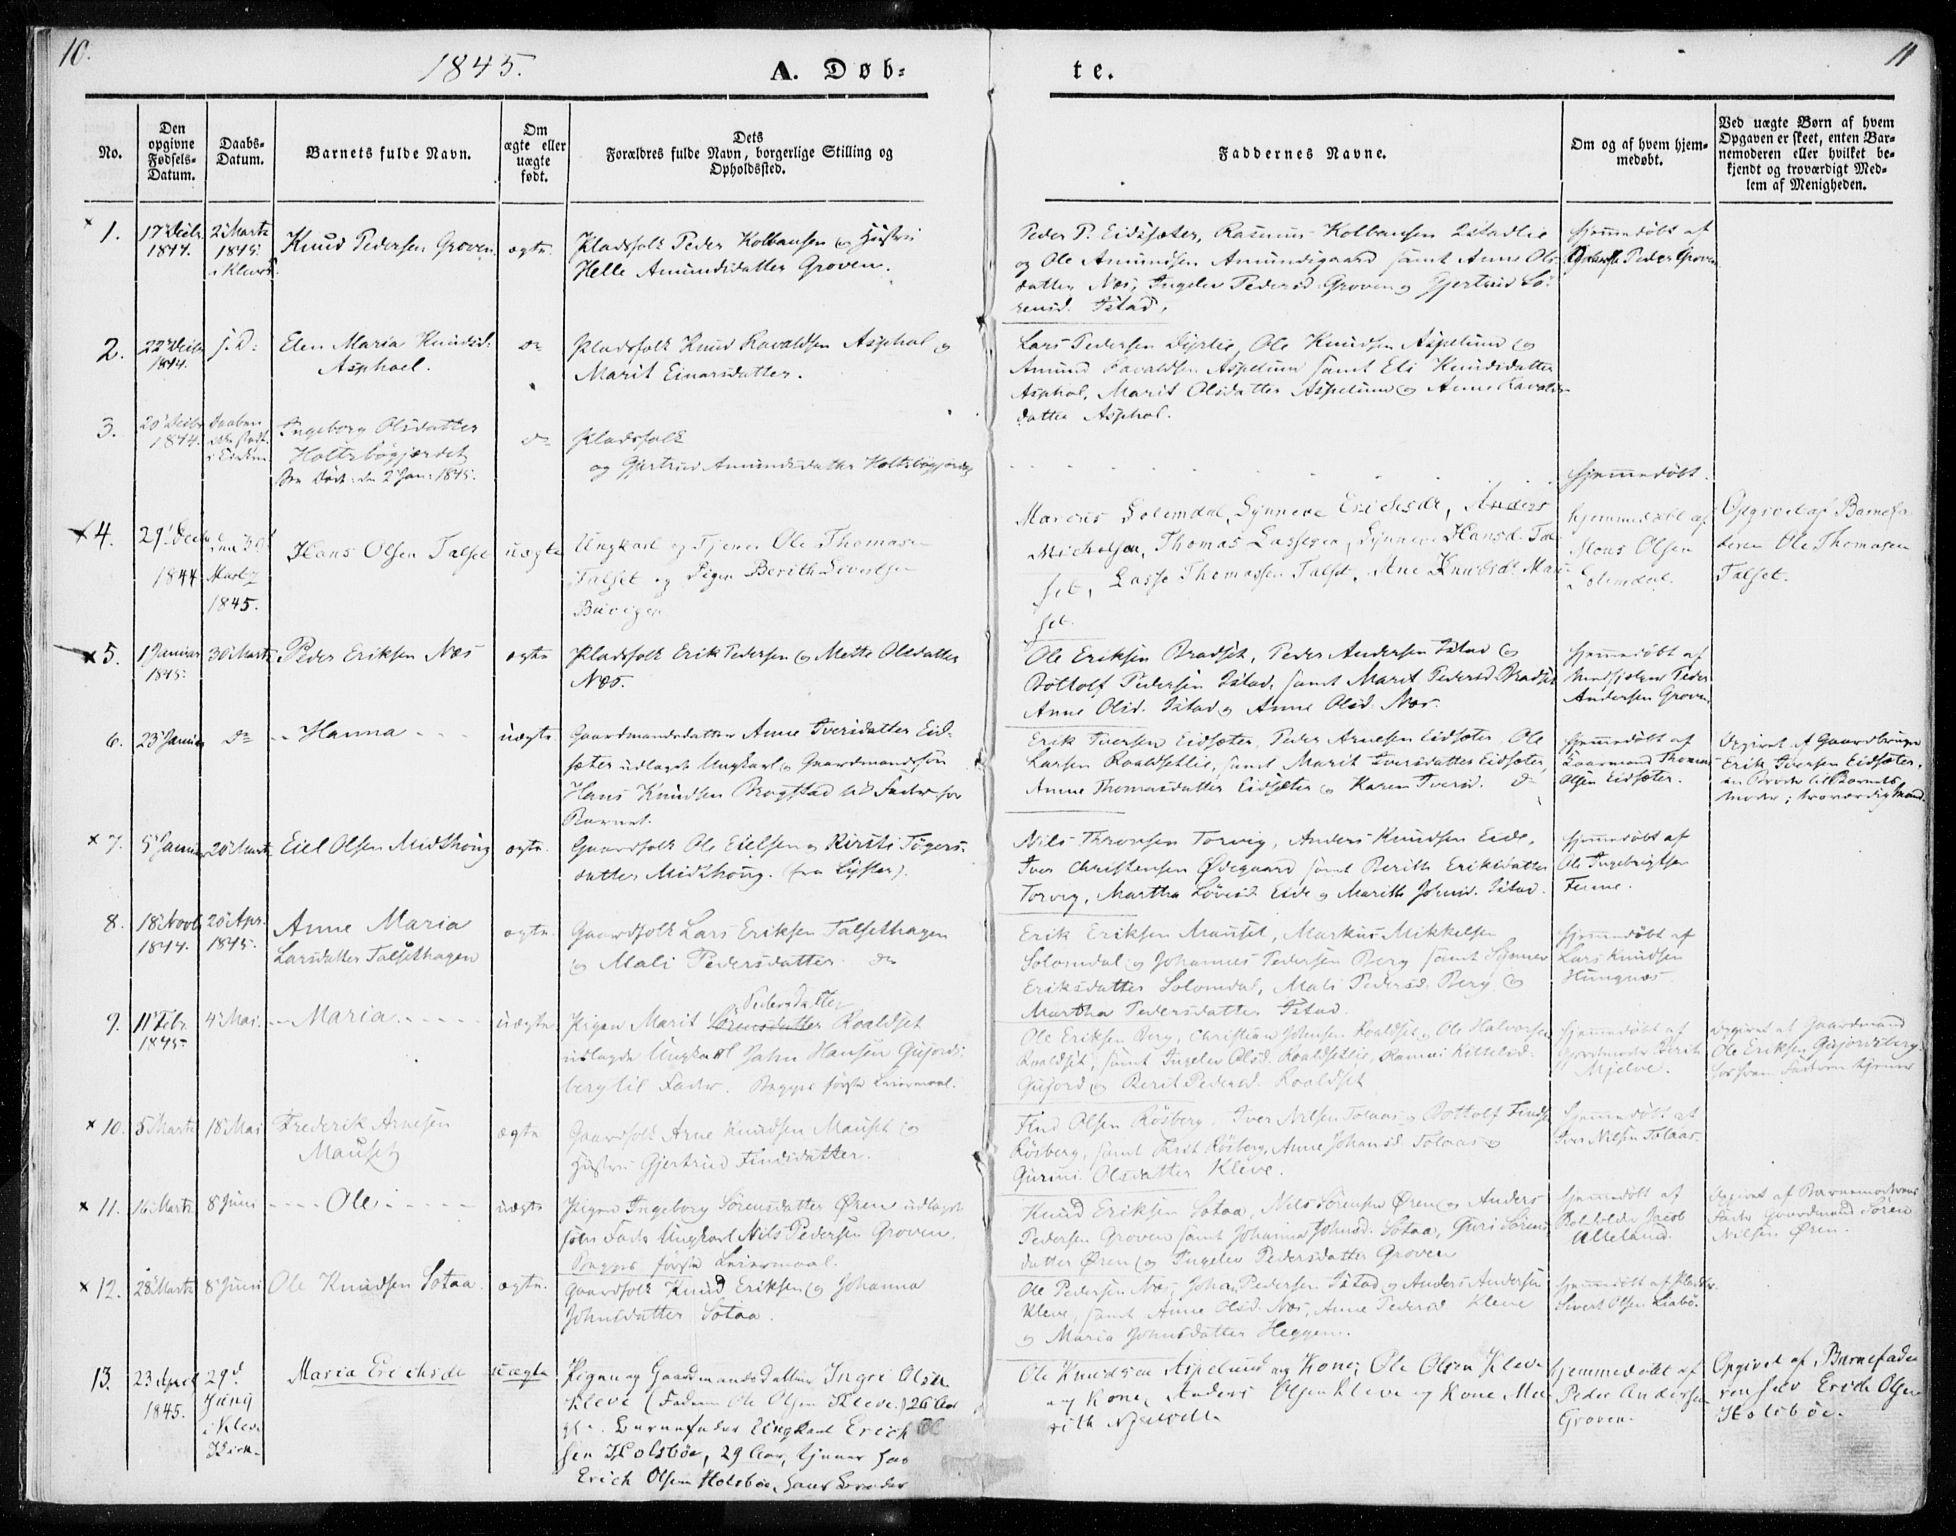 10.
1845.
A. Døb-
te.
11
No.
Den opgivne Fødsels-Datum.
Daabs-Datum.
Barnets fulde Navn.
Om ægte eller uægte født.
Dets Forældres fulde Navn, borgerlige Stilling og Opholdssted.
Faddernes Navne.
Om og af hvem hjem-medøbt.
Ved uægte Børn af hvem Opgaven er skeet, enten Bar-nemoderen eller hvilket be-kjendt og troværdigt Med-lem af Menigheden.
1.
17 Decbr 1844.
2 Marts 1845.
Knud Pedersen Groven
ægte.
Pladsfolk Peder Kolbansen og Hustru
Helle Amundsdatter Groven.
Peder P. Eidsæter, Rasmus Kolbansen Istadlie
og Ole Amundsen Amundsgaard samt Anne Ols-
datter Næs, Ingelev Pedersd. Groven og Gjertrud Sö-
rensd. Istad.
hjemmedøbt af
Peder Groven
2.
22 Decbr 1844.
s. D.
Elen Maria Knudsd.
Asphoel.
do
Pladsfolk Knud Ravaldsen Asphol og
Marit Einarsdatter.
Lars Pedersen Dyrlie, Ole Knudsen Aspelund og
Amund Ravaldsen Aspelund samt Eli Knudsdatter
Asphol, Marit Olsdatter Aspelund og Anne Ravalds-
datter Asphol.
3.
20 Decbr 1844.
Ingeborg Olsdatter
Holtsbøgjerdet
Død den 2 Jan: 1845.
do
Pladsfolk
og Gjertrud Amundsdatter Holtsbøgjerdet
hjemmedøbt.
4.
29 Decbr 1844
den 30 Marts 1845.
Hans Olsen Talset
uægte
Ungkarl og Tjener Ole Thomasen
Talset og Pigen Berith Sivertsen
Marcus Solemdal, Synneve Erichsdr, Anders
Michelsen, Thomas Lassesen, Synneve Hansd. Tal-
set, Lasse Thomassen Talset, Ane Knudsdr Mau-
set.
hjemmedøbt af
Mons Olsen
Solemdal.
Opgivet af Barnefa-
deren Ole Thomasen
Talset.
5.
1 Januar 1845.
30 Marts
Peder Eriksen Næs
ægte
Pladsfolk Erik Pedersen og Mette Olsdatter
Næs.
Ole Eriksen Bradset, Peder Andersen Istad og
Bottolf Pedersen Istad, samt Marit Pedersd. Bradset
Anne Olsd. Istad og Anne Olsd. Næs.
hjemmedøbt af
Medhjelper Peder
Andersen Groven
6.
23 Januar
do
Hanna
uægte
Gaardmandsdatter Anne Iversdatter Eid-
sæter udlagde Ungkarl og Gaardmandssøn
Hans Knudsen Brogstad til Fader for
Barnet.
Erik Iversen Eidsæter, Peder Arnesen Eidsæter, Ole
Larsen Roaldsetlie, samt Marit Iversdatter Eidsæter,
Anne Thomasdatter Eidsæter og Karen Iversd. do
hjemmedøbt af
Gaarmand Thomas
Olsen Eidsæter.
Opgivet af Gaardbruger
Erik Iversen Eidsæter,
en Broder til Barnets
Moder, troværdig Mand.
7.
5 Januar
20 Marts
Eiel Olsen Midthøug
ægte.
Gaardfolk Ole Eielsen og Kirsti Tøgers-
datter Midthoug. (fra Lyster).
Nils Thronsen Torvig, Anders Knudsen Eide,
Iver Christensen Ødegaard samt Berith Eriksdatter
Torvig, Martha Lovisd. Eide og Marith Johnsd. Istad.
hjemmedøbt af
Ole Ingebrigtsen
8.
18 Novbr 1844.
20 Apr. 1845.
Anne Maria
Larsdatter Talsethagen
ægte.
Gaardfolk Lars Eriksen Talsethagen
og Mali Pedersdatter do
Erik Eriksen Mauset, Markus Mikkelsen
Solemdal og Johannes Pedersen Berg samt Synnev
Eriksdatter Solemdal, Mali Pedersd. Berg og
Martha Pedersdatter Istad.
hjemmedøbt af
Lars Knudsen
Hungnæs.
9.
11 Febr. 1845.
4 Mai.
Maria
uægte
Pedersdatter
Pigen Marit Sörensdatter Roaldset
udlagde Ungkarl John Hansen Gujords-
berg til Fader. Begges første Leiermaal.
Ole Eriksen Berg, Christian Johnsen Roaldset og Ole Halvorsen
Roaldset, samt Ingelev Olsd. Roaldsetlie, Hanna Kittelsd.
Gujord og Berit Pedersd. Roaldset
hjemmedøbt af
Gjordmoder Berit
Mjelve.
opgivet af Gaardmand
Ole Eriksen Gujordsberg,
hos hvem Faderen tjener
10.
5 Marts
18 Mai
Frederik Arnesen
Mauset
ægte
Gaardfolk Arne Knudsen Mauset og
Hustru Gjertrud Findsdatter.
Find Olsen Røsberg, Iver Nilsen Tolaas og Bottolf Findsen
Røsberg, samt Berit Røsberg, Anne Johansd. Tolaas og
Guruni Olsdatter Kleve.
hjemmedøbt af
Iver Nilsen Tolaas.
11.
16 Marts
8 Juni
Ole
uægte
Pigen Ingeborg Sörensdatter Øren udlagde
som Fader Ungkarl Nils Pedersen Groven.
Begges første Leiermaal.
Knud Eriksen Sotaa, Nils Sörensen Øren og Anders
Pedersen Groven samt Johanna Johnsd. Sotaa, Guri Sörens-
datter Øren og Ingelev Pedersdatter Groven
hjemmedøbt af
Skoleholder Jacob
Alleland.
Opgivet af Barnemoderens
Fader Gaardmand Sören
Nilsen Øren.
12.
28 Marts
8 Juni
Ole Knudsen Sotaa.
ægte.
Gaardfolk Knud Eriksen og Johanna
Johnsdatter Sotaa.
Ole Pedersen Næs, Johan Pedersen Istad og Anders Andersen
Kleve, samt Anne Olsd. Næs, Anne Pedersd Kleve
og Maria Johnsdatter Heggem.
hjemmedøbt af
Sivert Olsen
13.
23 April 1845.
29d Junij i Kleve Kirke
Maria Erichsdr
uægte
Pigen og Gaardmandsdatter Ingri Olsdr
Kleve (Faderen Ole Olsen Kleve) 26 Aar
gl. Barnefader Ungkarl Erich Ol
sen Holsbøe, 29 Aar, tjener hos
Erich Olsen Holsbøe, hans Broder
Ole Knudsen Aspelund og Kone, Ole Olsen Kleve
og Kone, Anders Olsen Kleve og Kone Ma-
rith
hjemmedøbt af
Peder Andersen
Groven.
Opgivet af Barnefade
ren selv Erich Olsen
Holsbøe.